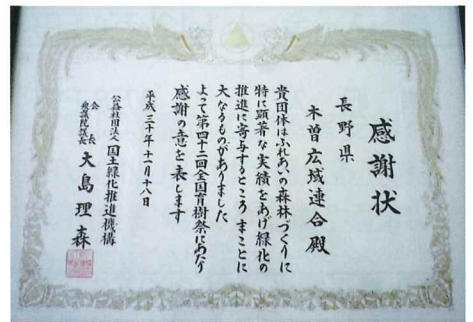 感謝状
長野県
木曽広域連合殿
貴団体はふれあいの森林づくりに
特に顕著な実績をあげ緑化の
推進に寄与するところまことに
大なるものがありました
よって第四十二回全国育樹祭にあたり
感謝の意を表します
平成三十年十一月十八日
公益社団法人国土緑化推進機構
会長
衆議院議長
大島理森